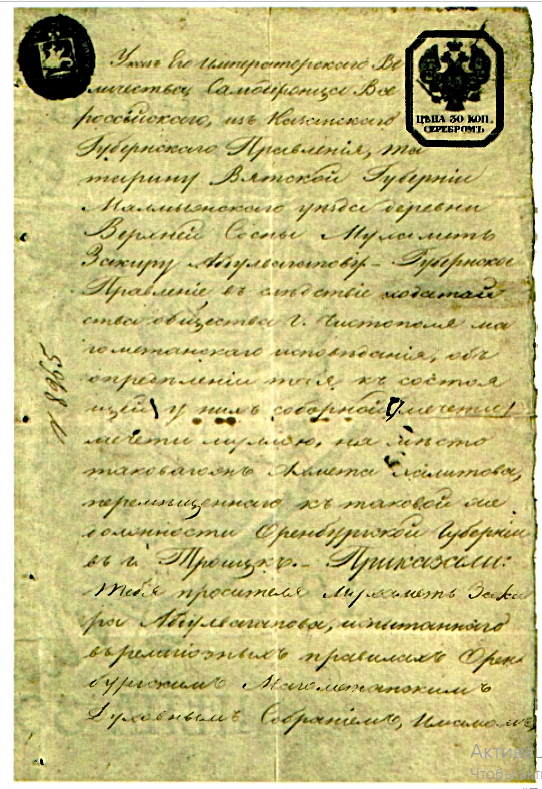 Указ Его Императорскаго Ве
личества Самодержца Все
россійскаго, изъ Казанскаго
Губернскаго Правленія, та
тарину Вятской Губерніи
Малмыжскаго уѣзда деревни
Верхней Сосны Мухаметъ
Закиру Абдулвагапову. Губернское
Правленіе въ слѣдствіе ходатай
ства общества г. Чистополя ма
гометанскаго исповѣданія, объ
опредѣленіи тебя къ состоя
щей у нихъ соборной мечети
мечети муллою, на мѣсто
таковаго Ахмета Халитова,
перемѣщеннаго къ таковой же
должности Оренбургской Губерніи
въ г. Троицкъ. Приказали:
тебя просителя Мухаметъ Заки
ра Абдулвагапова, испытаннаго
въ религіозныхъ правилахъ Орен
бургскимъ Магометанскимъ
Духовнымъ Собраніемъ, Имамомъ,
ЦѢНА 30 КОП.
СЕРЕБРОМЪ
N 8965